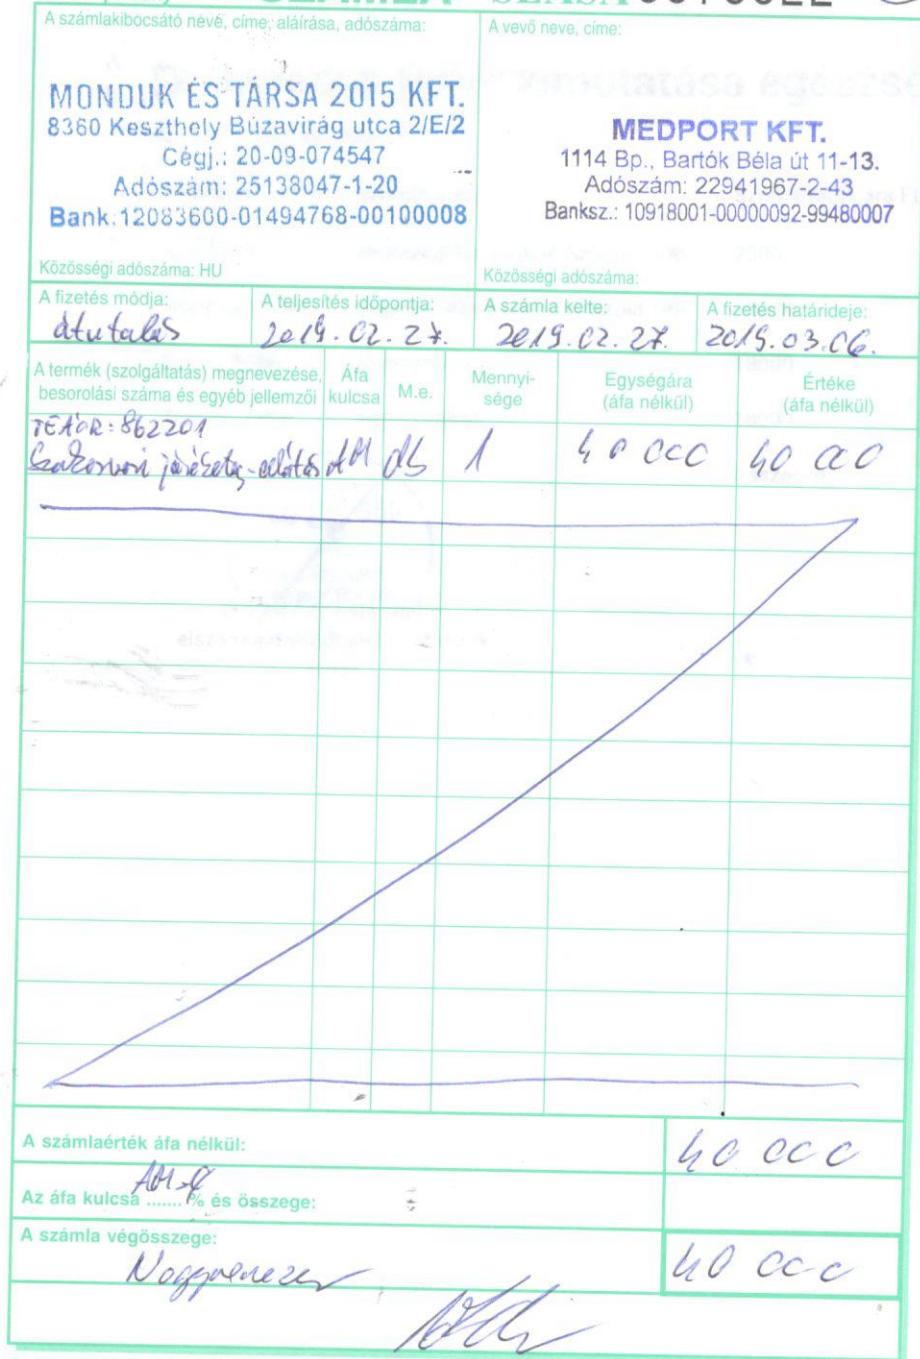 A számlakibocsátó neve, címe, aláírása, adószáma:
A vevő neve, címe:
MONDUK ÉS TÁRSA 2015 KFT.
8360 Keszthely Búzavirág utca 2/E/2
Cégj.: 20-09-074547
Adószám: 25138047-1-20
Bank.:12083600-01494768-00100008
MEDPORT KFT.
1114 Bp., Bartók Béla út 11-13.
Adószám: 22941967-2-43
Banksz.: 10918001-00000092-99480007
Közösségi adószáma: HU
Közösségi adószáma:
A fizetés módja:
A teljesítés időpontja:
A számla kelte:
A fizetés határideje:
átutalás
2019.02.27.
2019.02.27.
2019.03.06.
A termék (szolgáltatás) megnevezése,
besorolási száma és egyéb jellemzői
Áfa
kulcsa
M.e.
Mennyi-
sége
Egységára
(áfa nélkül)
Értéke
(áfa nélkül)
TEÁOR: 862201
Szakorvosi járóbeteg-ellátás AM db 1 40 000 40 000
A számlaérték áfa nélkül:
40 000
Az áfa kulcsa AM ....... % és összege:
A számla végösszege:
40 000
Negyvenezer